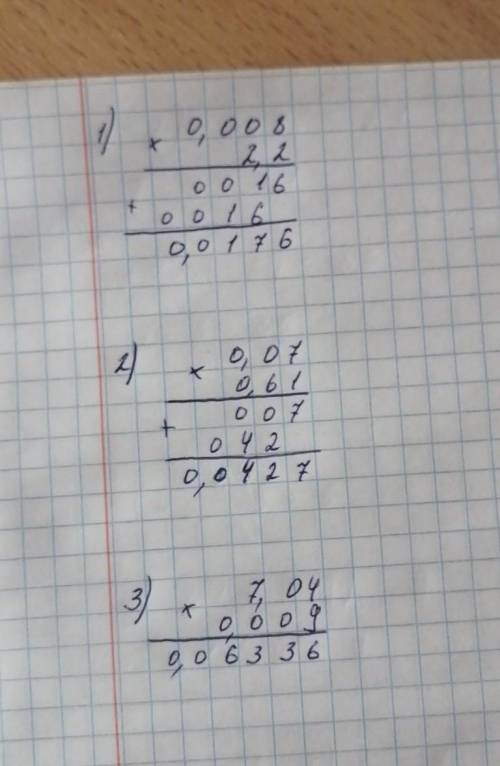 1) 0,008
× 2,2
0016
+ 0016
0,0176
2) × 0,07
0,61
+ 007
042
0,0427
3) × 7,04
0,009
0,06336